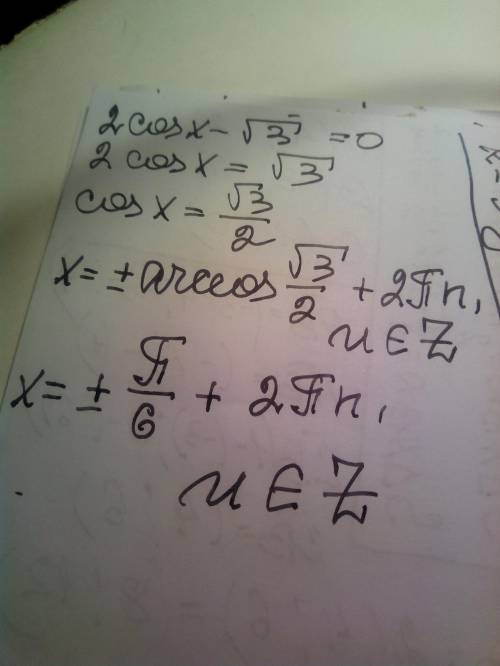 2 cos x - √3 = 0
2 cos x = √3
cos x = √3/2
x = ± arccos √3/2 + 2πn,
n ∈ Z
x = ± π/6 + 2πn,
n ∈ Z